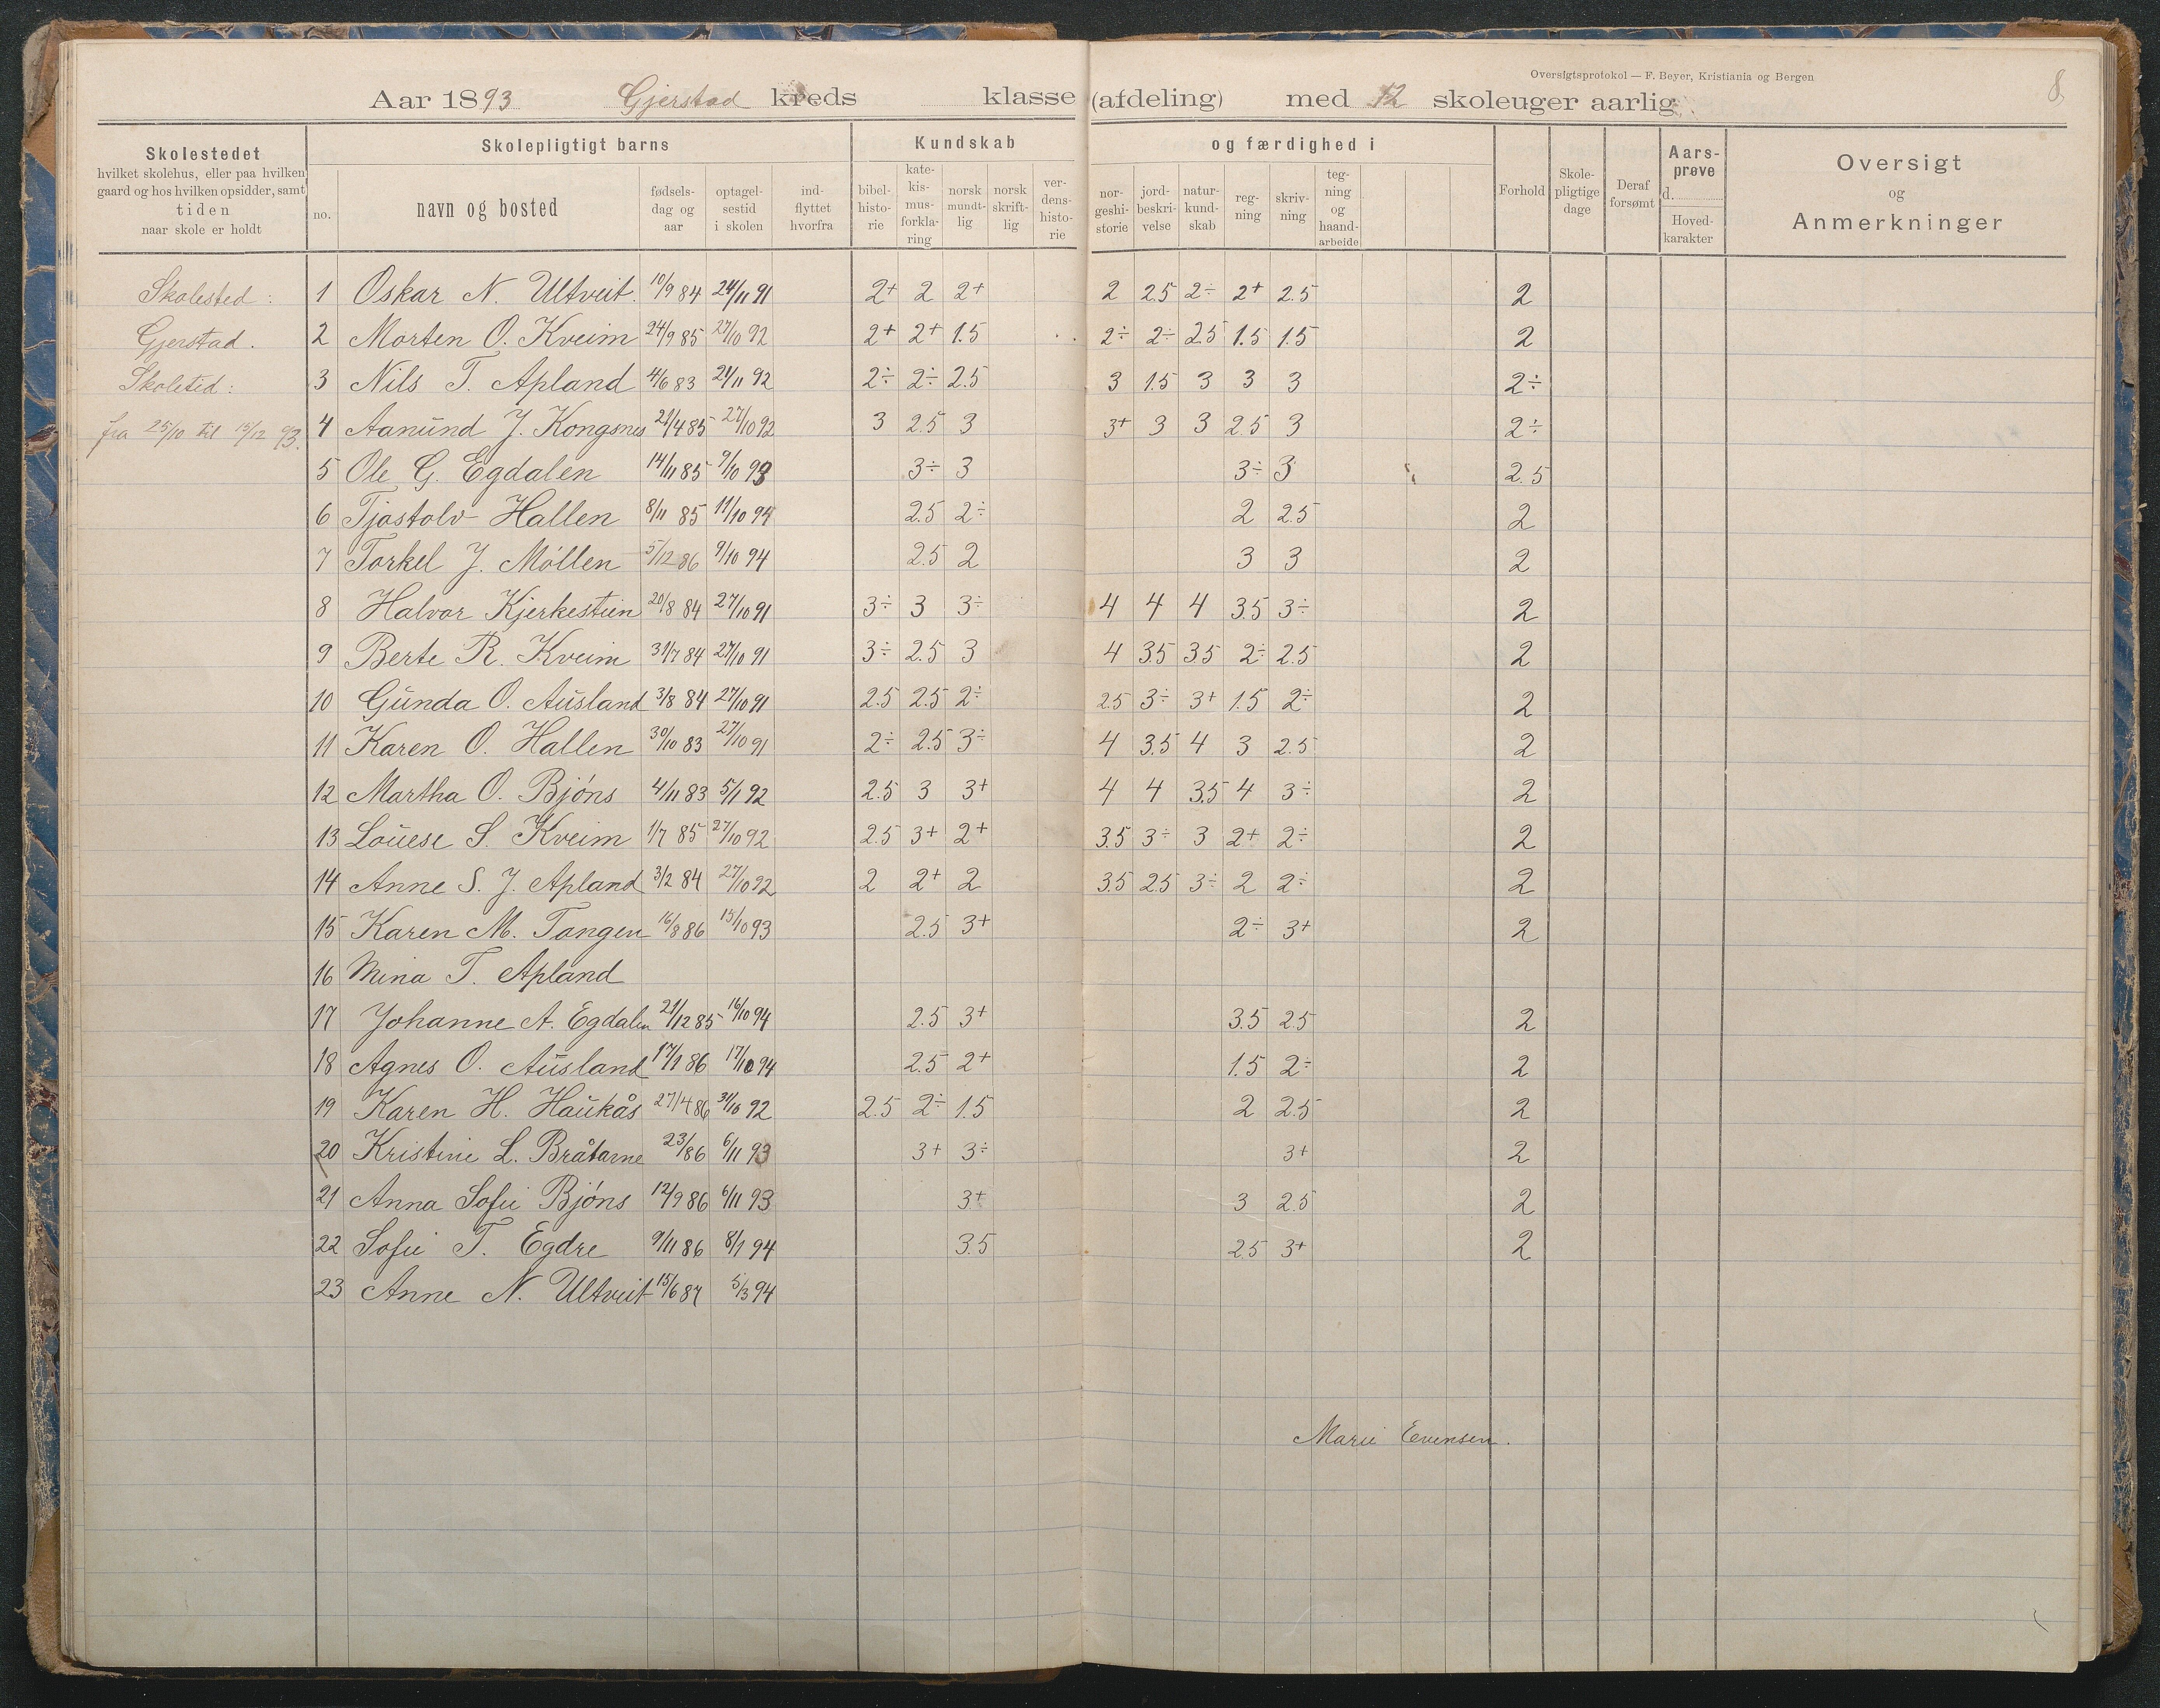 Oversigtsprotokol — F. Beyer, Kristiania og Bergen
8
Aar 1893 Gjerstad kreds klasse (afdeling) med 12 skoleuger aarlig.
Skolestedet
hvilket skolehus, eller paa hvilken
gaard og hos hvilken opsidder, samt
tiden
naar skole er holdt
Skolepligtigt barns
no.
navn og bosted
fødsels-
dag og
aar
optagel-
sestid
i skolen
ind-
flyttet
hvorfra
Kundskab og færdighed i
bibel-
histo-
rie
kate-
kis-
mus-
forkla-
ring
norsk
mundt-
lig
norsk
skrift-
lig
ver-
dens-
histo-
rie
nor-
geshi-
storie
jord-
beskri-
velse
natur-
kund-
skab
reg-
ning
skriv-
ning
teg-
ning
og
haand-
arbeide
Forhold
Skole-
pligtige
dage
Deraf
forsømt
Aars-
prøve
d.
Hoved-
karakter
Oversigt
og
Anmerkninger
Skolested:
Gjerstad.
Skoletid:
fra 25/10 til 15/12 93.
1 Oskar N. Ultveit. 10/9 84 24/11 91 2+ 2 2+ 2 2.5 2÷ 2+ 2.5 2
2 Morten O. Kveim 24/9 85 27/10 92 2+ 2+ 1.5 2÷ 2÷ 2.5 1.5 1.5 2
3 Nils T. Apland 4/6 83 21/11 92 2÷ 2÷ 2.5 3 1.5 3 3 3 2÷
4 Aanund J. Kongsnes 21/4 85 27/10 92 3 2.5 3 3+ 3 3 2.5 3 2÷
5 Ole G. Egdalen 14/11 85 9/10 93 3÷ 3 3÷ 3 2.5
6 Tjostolv Hallen 8/11 85 11/10 94 2.5 2÷ 2 2.5 2
7 Torkel J. Möllen 5/12 86 9/10 94 2.5 2 3 3 2
8 Halvor Kjerkestein 20/8 84 27/10 91 3÷ 3 3÷ 4 4 4 3.5 3÷ 2
9 Berte R. Kveim 31/7 84 27/10 91 3÷ 2.5 3 4 3.5 3.5 2÷ 2.5 2
10 Gunda O. Ausland 3/8 84 27/10 91 2.5 2.5 2÷ 2.5 3÷ 3+ 1.5 2÷ 2
11 Karen O. Hallen 30/10 83 27/10 91 2÷ 2.5 3÷ 4 3.5 4 3 2.5 2
12 Martha O. Bjöns 4/11 83 5/1 92 2.5 3 3+ 4 4 3.5 4 3÷ 2
13 Louese S. Kveim 1/7 85 27/10 92 2.5 3+ 2+ 3.5 3÷ 3 2+ 2÷ 2
14 Anne S. J. Apland 3/2 84 27/10 92 2 2+ 2 3.5 2.5 3÷ 2 2÷ 2
15 Karen M. Tangen 16/8 86 15/10 93 2.5 3+ 2÷ 3+ 2
16 Mina T. Apland
17 Johanne A. Egdalen 21/12 85 16/10 94 2.5 3+ 3.5 2.5 2
18 Agnes O. Ausland 17/1 86 17/10 94 2.5 2+ 1.5 2÷ 2
19 Karen H. Haukås 27/4 86 31/10 92 2.5 2÷ 1.5 2 2.5 2
20 Kristine L. Bråtarne 23/86 6/11 93 3+ 3÷ 3+ 2
21 Anna Sofie Bjöns 12/9 86 6/11 93 3+ 3 2.5 2
22 Sofie T. Egdre 9/11 86 8/1 94 3.5 2.5 3+ 2
23 Anne N. Ultveit 15/6 87 5/3 94
Marie Evensen.